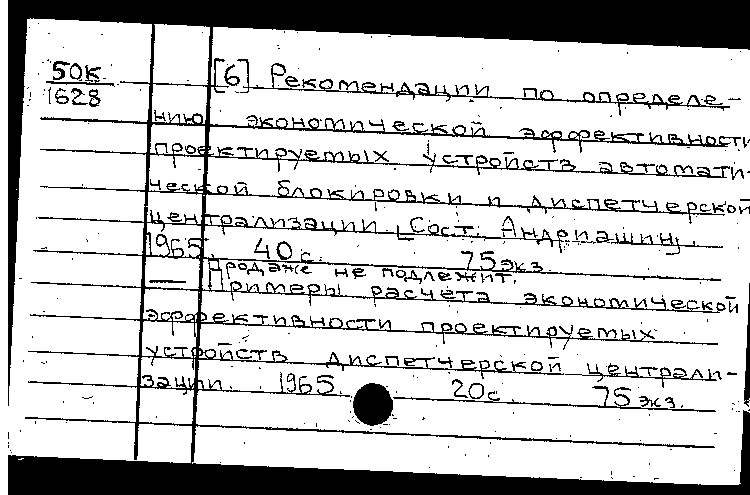 50К
1628
[6] Рекомендации по определе-
нию экономической эффективности
проектируемых устройств автомати-
ческой блокировки и диспетчерской
централизации [Сост. Андриашин].
1965. 40 с. 75 экз.
Продаже не подлежит.
— Примеры расчета экономической
эффективности проектируемых
устройств диспетчерской централи-
зации. 1965. 20 с. 75 экз.